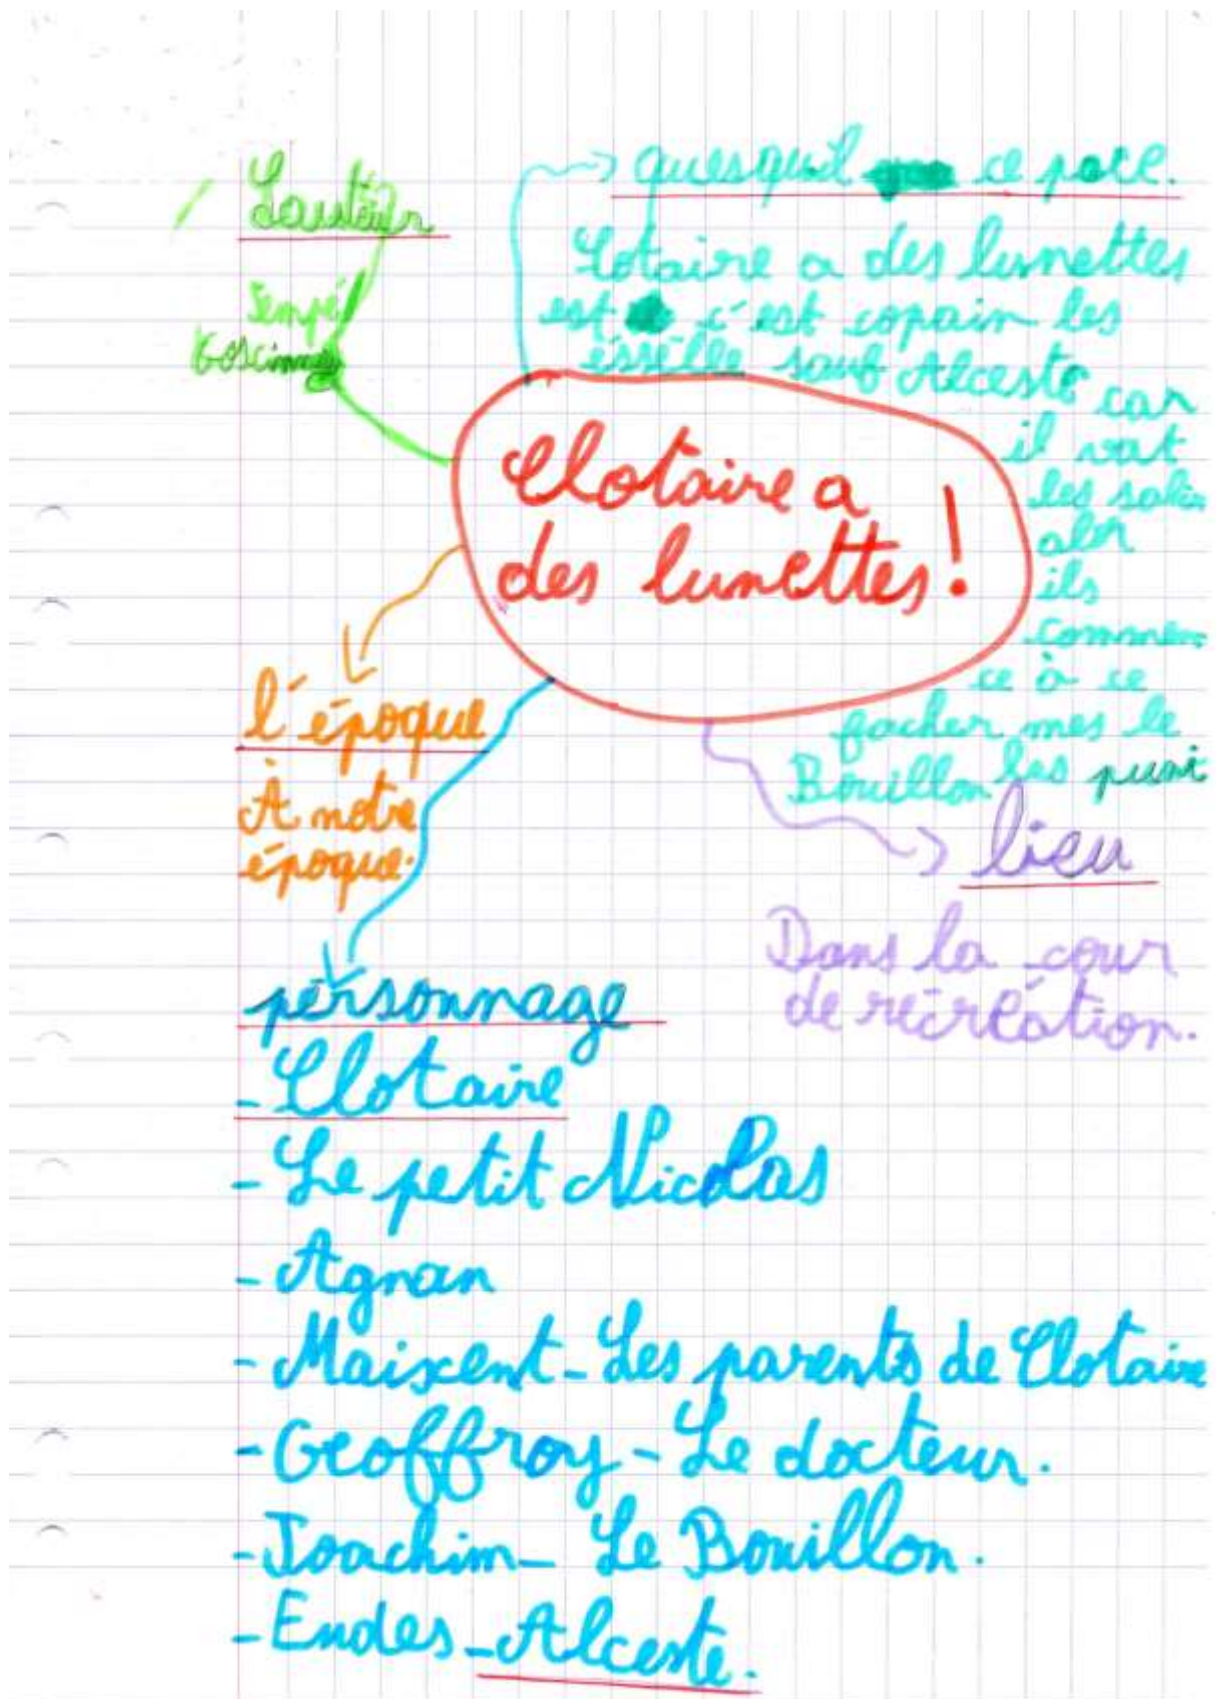 Lauteur
Sempé
Goscinny
quesquil ce pace.
Clotaire a des lunettes
est c'est copain les
éssélle sauf Alceste car
il vat
les salir
alor
ils
commen
ce à ce
facher mes le
Bouillon les puni
Clotaire a
des lunettes!
l'époque
À notre
époque.
lieu
Dans la cour
de récréation.
personnage
- Clotaire
- Le petit Nicolas
- Agnan
- Maixent - Les parents de Clotaire
- Geoffroy - Le docteur.
- Joachim - Le Bouillon.
- Eudes - Alceste.